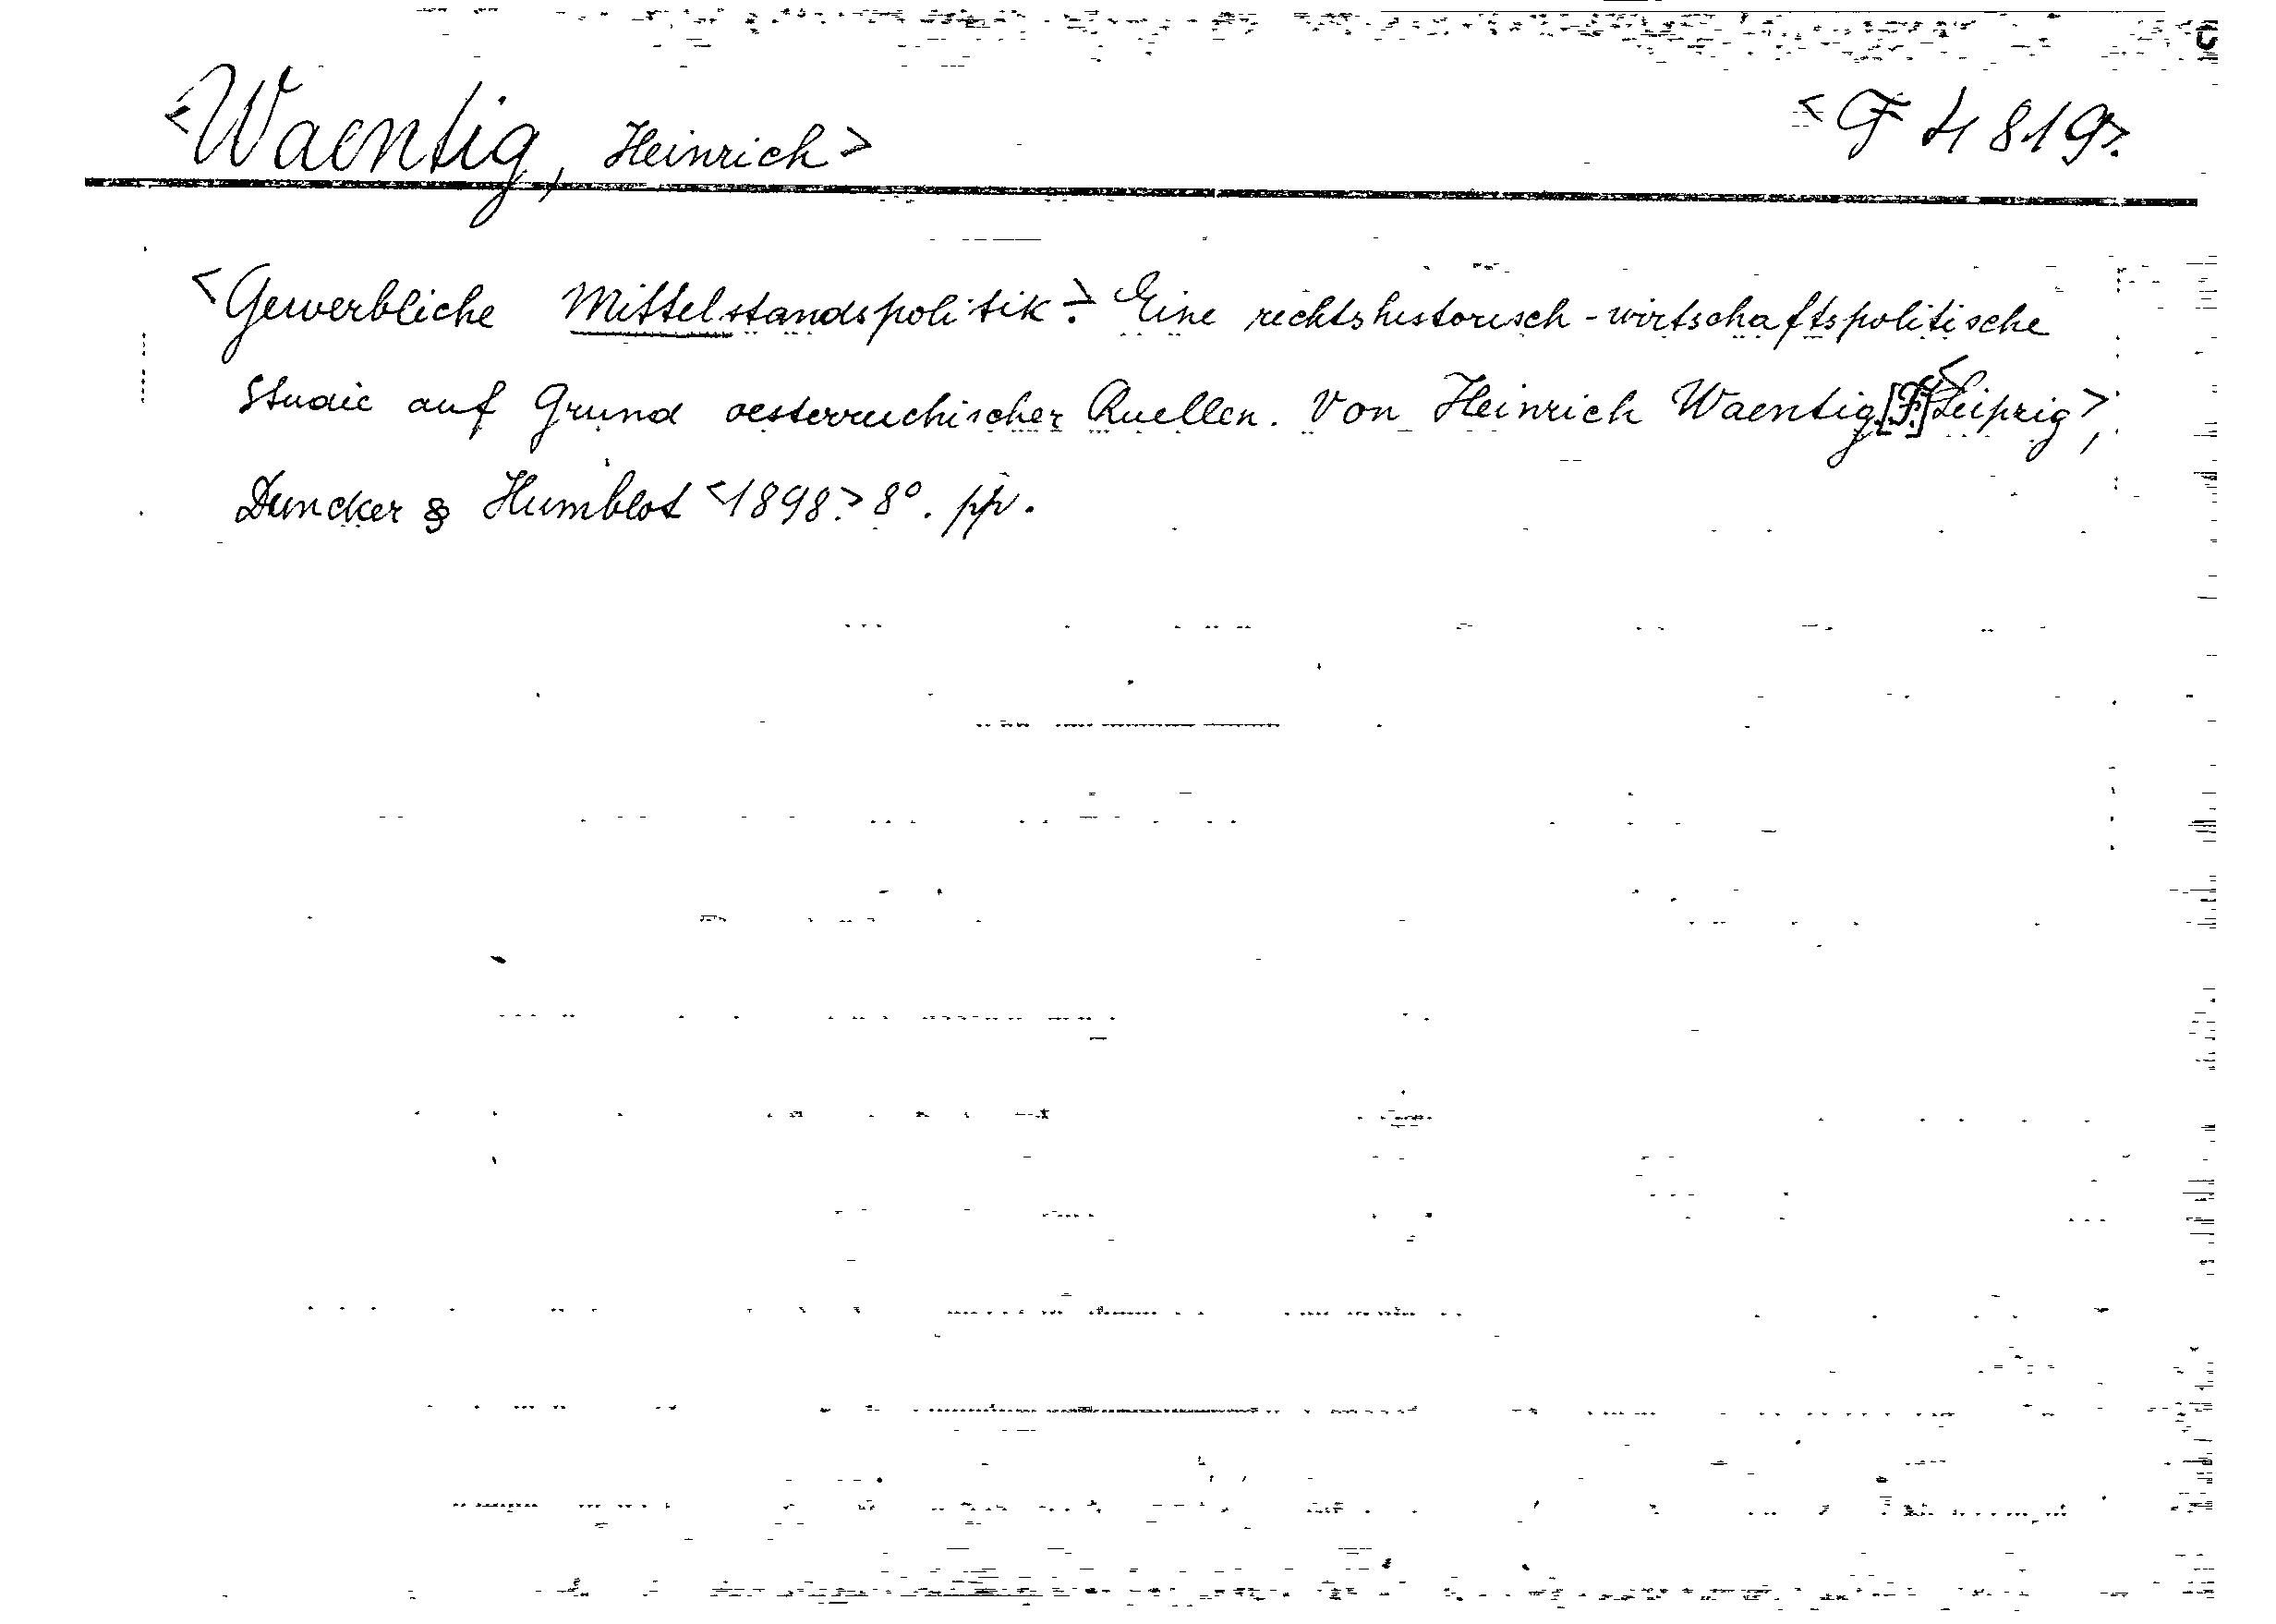 <Waentig, Heinrich>
<F 4819>.
<Gewerbliche Mittelstandspolitik>. Eine rechtshistorisch-wirtschaftspolitische
Studie auf Grund oesterreichischer Quellen. Von Heinrich Waentig.[F.]<Leipzig>,
Duncker & Humblot <1898>. 8°. pp.